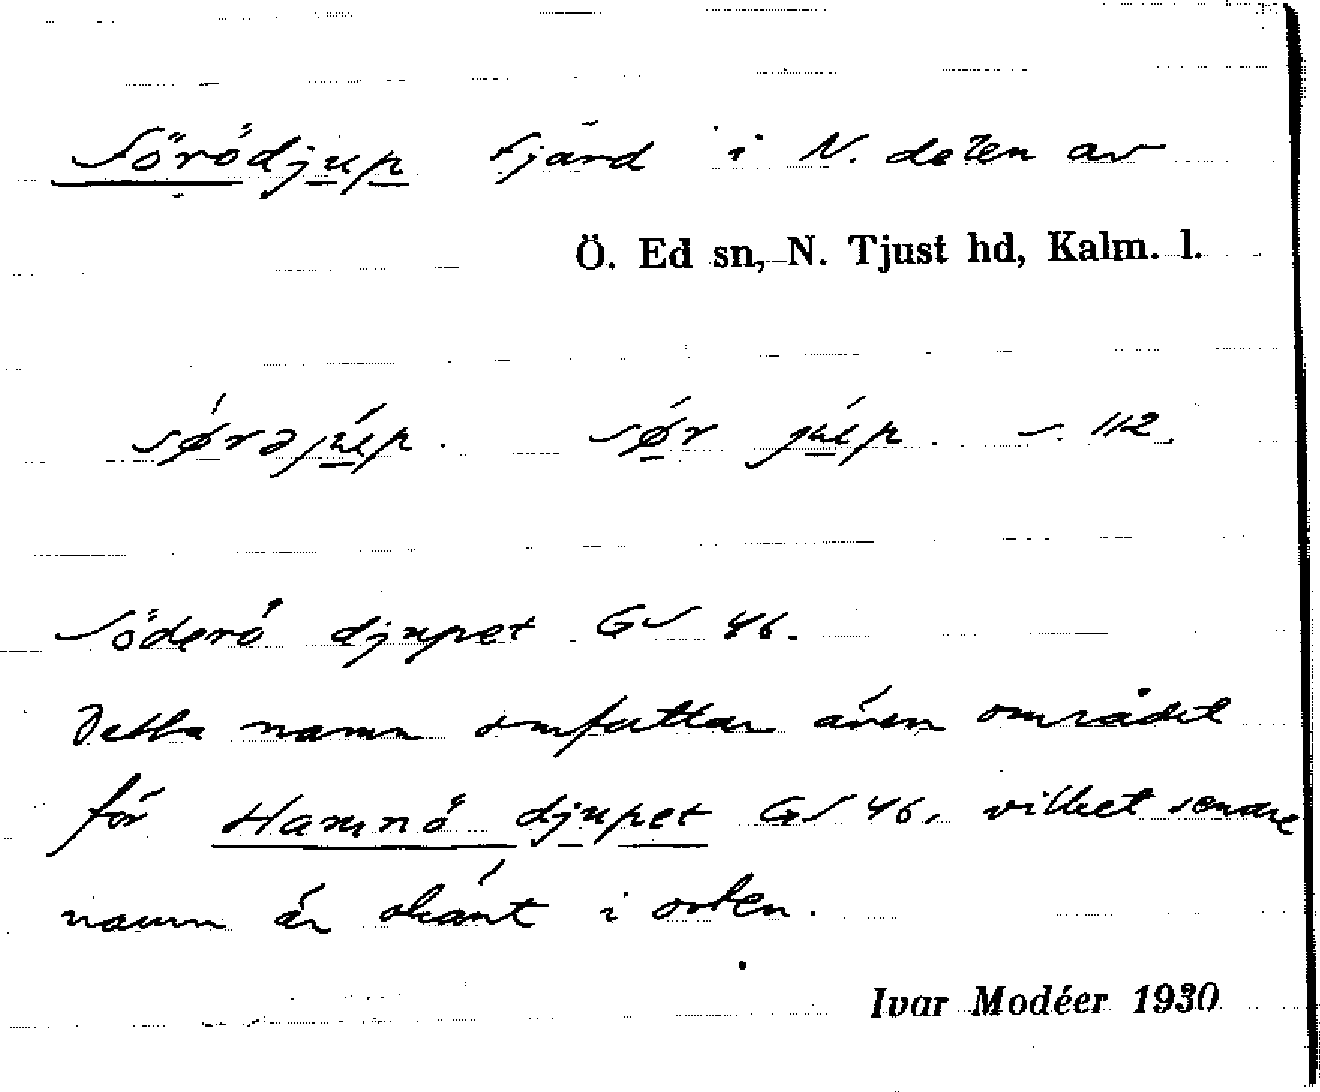 Sörödjup Fjärd i N. delen av
Ö. Ed sn, N. Tjust hd, Kalm. l.
sørəjúp. sør júp. s. 112.
Söderö djupet GS 46.
Detta namn omfattar även området
för Hamnö djupet GS 46, vilket senare
namn är okänt i orten.
Ivar Modéer 1930